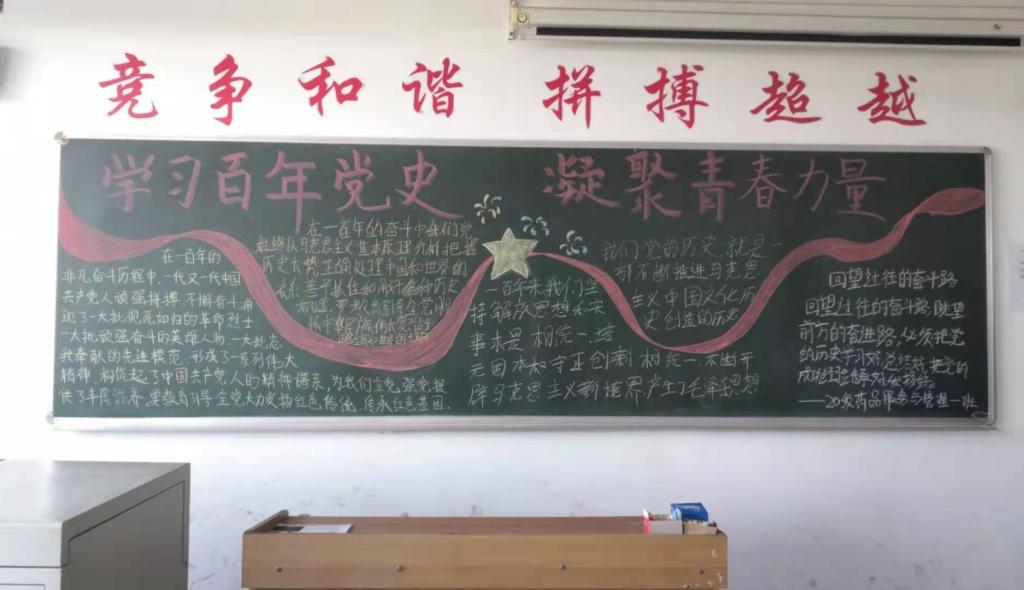 竞争和谐 拼搏超越
学习百年党史 凝聚青春力量
在一百年的
非凡奋斗历程中，一代又一代中国
共产党人顽强拼搏、不懈奋斗，涌
现了一大批视死如归的革命烈士
一大批顽强奋斗的英雄人物、一大批忘
我奉献的先进模范，形成了一系列伟大
精神，构筑起了中国共产党人的精神谱系，为我们立党兴党强党提
供了丰厚滋养。要教育引导全党大力发扬红色传统、传承红色基因。
在一百年的奋斗中，我们党
始终以马克思主义基本原理分析把握
历史大势，正确处理中国和世界的
关系，善于抓住和
一百年来，我们坚
持解放思想和实
事求是相统一、培
元固本和守正创新相统一，不断开
辟马克思主义新境界，产生了毛泽东思想
我们党的历史，就是一
部不断推进马克思
主义中国化历
史创造的历史
回望过往的奋斗路
回望过往的奋斗路，眺望
前方的奋进路，必须把党
的历史学习好、总结好，把党的
成功经验
——20级药品服务与管理一班